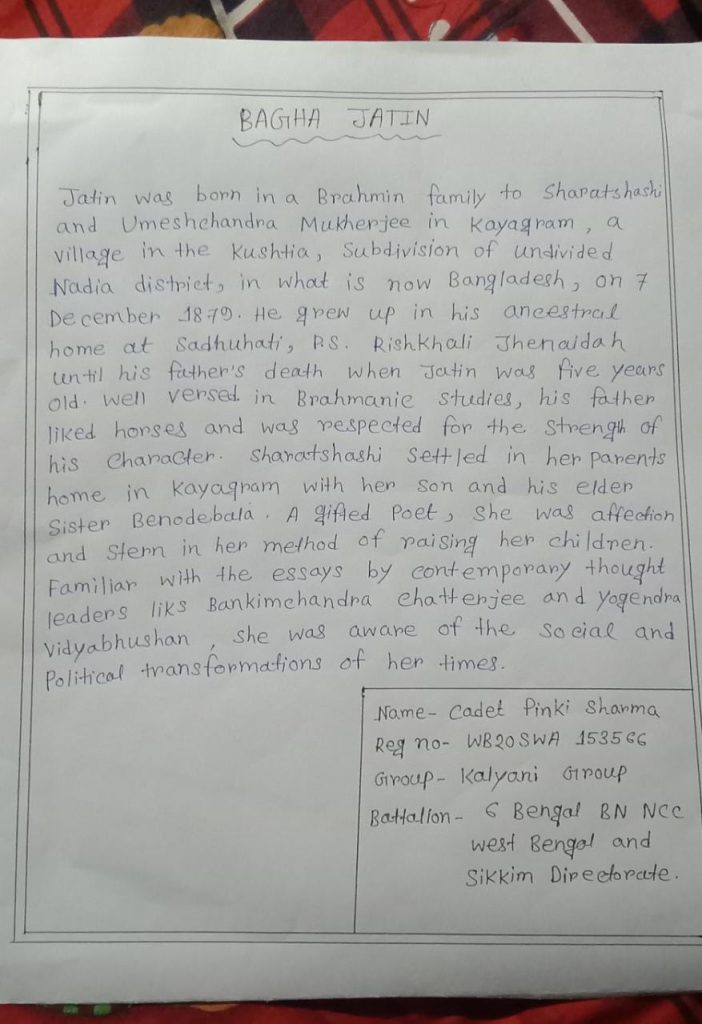 BAGHA JATIN
Jatin was born in a Brahmin family to Sharatshashi
and Umeshchandra Mukherjee in Kayagram, a
village in the Kushtia, Subdivision of undivided
Nadia district, in what is now Bangladesh, on 7
December 1879. He grew up in his ancestral
home at Sadhuhati, P.S. Rishkhali Jhenaidah
until his father's death when Jatin was five years
old. Well versed in Brahmanic studies, his father
liked horses and was respected for the strength of
his Character. Sharatshashi Settled in her parents
home in Kayagram with her son and his elder
Sister Benodebala. A gifted Poet, She was affection
and Stern in her method of raising her children.
Familiar with the essays by contemporary thought
leaders liks Bankimchandra Chatterjee and Yogendra
Vidyabhushan, she was aware of the social and
Political transformations of her times.
Name- Cadet Pinki Sharma
Reg no- WB20SWA 153566
Group- Kalyani Group
Battalion- 6 Bengal BN NCC
west Bengal and
Sikkim Directorate.